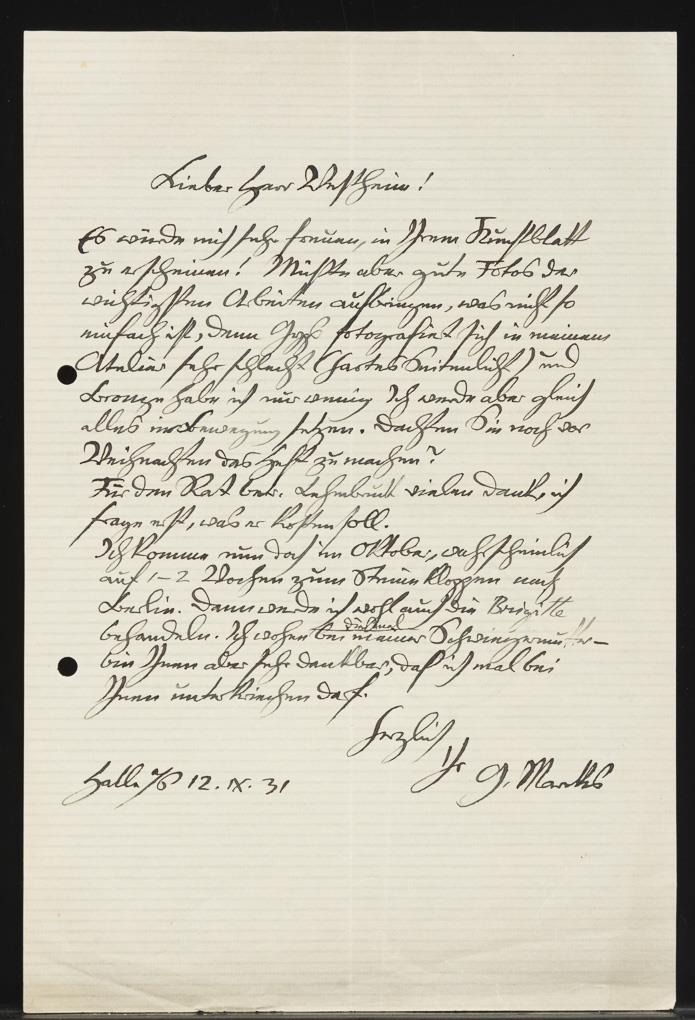 Lieber Herr Westheim!
Es würde mich sehr freuen, in Ihrem Kunstblatt
zu erscheinen! Müsste aber gute Fotos der
wichtigsten Arbeiten aufbringen, was nicht so
einfach ist, denn Gips fotografiert sich in meinem
Atelier sehr schlecht (hartes Seitenlicht) und
Bronze habe ich nur wenig. Ich werde aber gleich
alles in Bewegung setzen. Dachten Sie noch vor
Weihnachten das Heft zu machen?
Für den Rat betr. Lehmbruck vielen Dank, ich
frage erst, was er kosten soll.
Ich komme nun doch im Oktober, wahrscheinlich
auf 1–2 Wochen zum Steine kloppen nach
Berlin. Dann werde ich wohl auch die Brigitte
behandeln. Ich wohne diesmal bei meiner Schwiegermutter –
bin Ihnen aber sehr dankbar, daß ich mal bei
Ihnen unterkriechen darf.
Herzlich
Ihr G. Marcks
Halle a/S 12. IX. 31